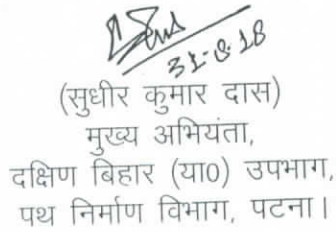 31-8-18
(सुधीर कुमार दास)
मुख्य अभियंता,
दक्षिण बिहार (या0) उपभाग,
पथ निर्माण विभाग, पटना।